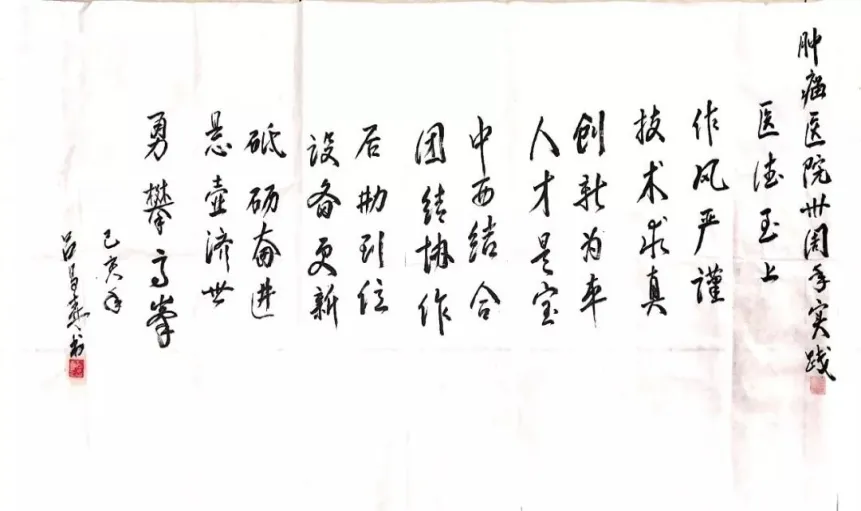 肿瘤医院卅周年实践
医德至上
作风严谨
技术求真
创新为
人才是宝
中西结合
团结协作
后勤到位
设备更新
砥砺奋进
悬壶济世
勇攀高峯
己亥年
吕昌书